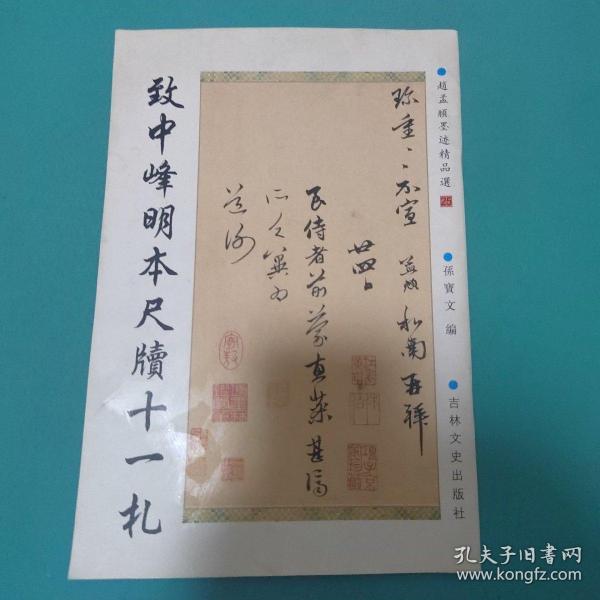 趙孟頫墨迹精品選 25
孫寶文 編
吉林文史出版社
珍重〻不宣 孟頫和南再拜
廿四日
民侍者前蒙惠藥甚濟
所乏冀為
道謝
致中峰明本尺牘十一札
孔夫子旧书网
www.kongfz.com